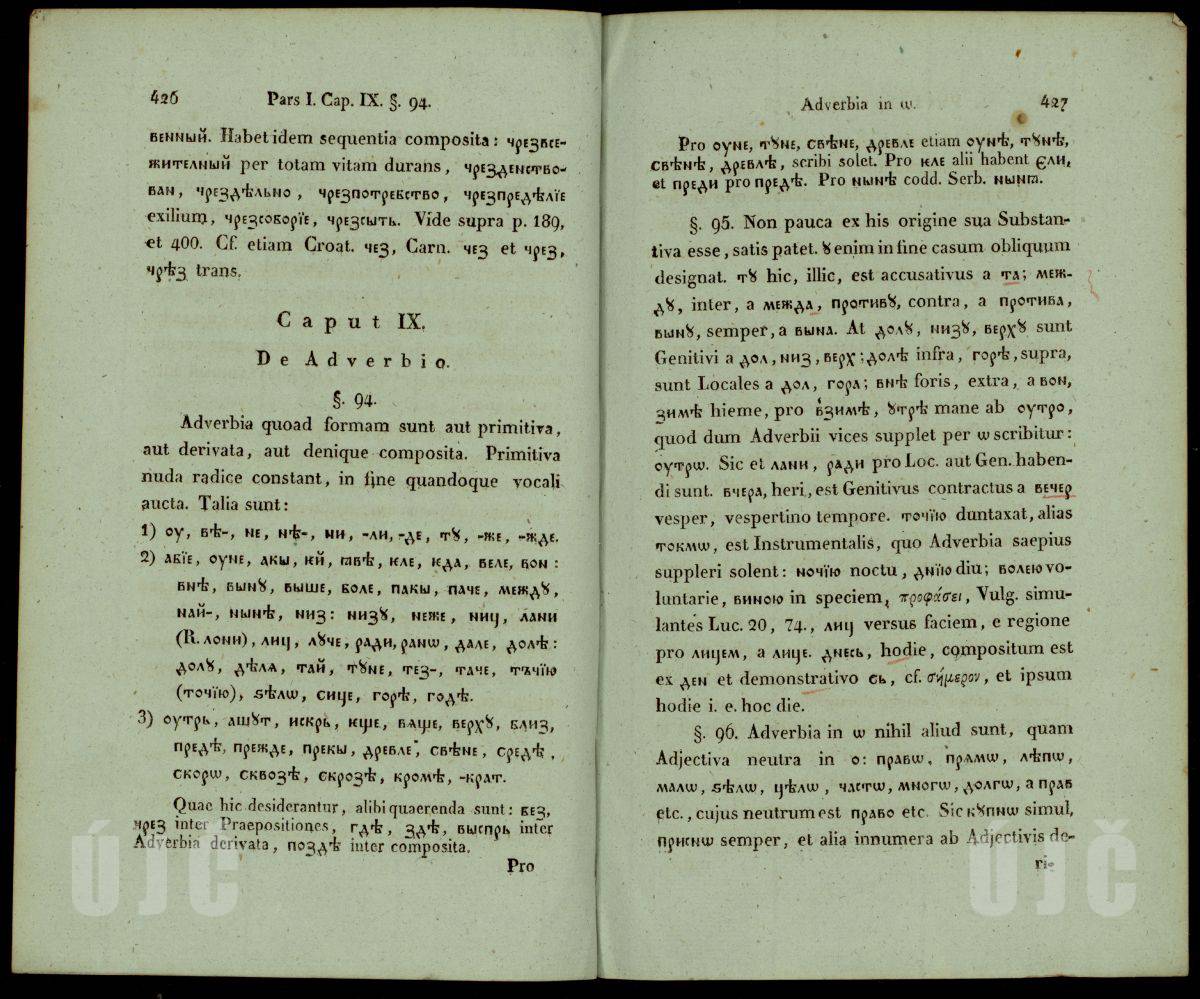 426 Pars I. Cap. IX. §. 94.
венный. Habet idem sequentia composita: чрезвсе-
жителный per totam vitam durans, чрезденство-
ван, чрездѣльно, чрезпотребство, чрезпредѣлїе
exilium, чрезсоборїе, чрезсыть. Vide supra p. 189,
et 400. Cf. etiam Croat. чез, Carn. чез et чрез,
чрѣз trans.
Caput IX.
De Adverbio.
§. 94.
Adverbia quoad formam sunt aut primitiva,
aut derivata, aut denique composita. Primitiva
nuda radice constant, in fine quandoque vocali
aucta. Talia sunt:
1) оу, вѣ-, не, нѣ-, ни, -ли, -де, тꙋ, -же, -жде.
2) абїе, оуне, акы, кй, ꙗвѣ, кле, кда, веле, вон:
внѣ, вынꙋ, выше, боле, пакы, паче, междꙋ,
най-, нынѣ, низ: низꙋ, неже, ниц, лани
(R. лони), лиц, лꙋче, ради, ранѡ, дале, долѣ:
долꙋ, дѣлꙗ, тай, тꙋне, тез-, таче, тъчїю
(точїю), ѕѣлѡ, сице, горѣ, годѣ.
3) оутрь, ашꙋт, искрь, кще, вѧще, верхꙋ, близ,
предѣ, прежде, прекы, древле, свѣне, средѣ,
скорѡ, сквозѣ, скрозѣ, кромѣ, -крат.
Quae hic desiderantur, alibi quaerenda sunt: без,
чрез inter Praepositiones, гдѣ, здѣ, выспрь inter
Adverbia derivata, поздѣ inter composita.
Pro
Adverbia in ѡ. 427
Pro оуне, тꙋне, свѣне, древле etiam оунѣ, тꙋнѣ,
свѣнѣ, древлѣ, scribi solet. Pro кле alii habent ели,
et преди pro предѣ. Pro нынѣ codd. Serb. нынꙗ.
§. 95. Non pauca ex his origine sua Substan-
tiva esse, satis patet. ꙋ enim in fine casum obliquum
designat. тꙋ hic, illic, est accusativus a та; меж-
дꙋ, inter, a межда, противꙋ, contra, a противa,
вынꙋ, semper, a вына. At долꙋ, низꙋ, верхꙋ sunt
Genitivi a дол, низ, верх; долѣ infra, горѣ, supra,
sunt Locales a дол, гора; внѣ foris, extra, a вон,
зимѣ hieme, pro взимѣ, ꙋтрѣ mane ab оутро,
quod dum Adverbii vices supplet per ѡ scribitur:
оутрѡ. Sic et лани, ради pro Loc. aut Gen. haben-
di sunt. вчера, heri, est Genitivus contractus a вечер
vesper, vespertino tempore. точїю duntaxat, alias
токмѡ, est Instrumentalis, quo Adverbia saepius
suppleri solent: ночїю noctu, днїю diu; волею vo-
luntarie, виною in speciem, προφάσει, Vulg. simu-
lantes Luc. 20, 74., лиц versus faciem, e regione
pro лицем, a лице. днесь, hodie, compositum est
ex ден et demonstrativo сь, cf. σήμερον, et ipsum
hodie i. e. hoc die.
§. 96. Adverbia in ѡ nihil aliud sunt, quam
Adjectiva neutra in о: правѡ, прѧмѡ, лѣпѡ,
малѡ, ѕѣлѡ, цѣлѡ, частѡ, многѡ, долгѡ, a прав
etc., cujus neutrum est право etc. Sic кꙋпнѡ simul,
приснѡ semper, et alia innumera ab Adjectivis de-
ri-
ÚJČ
ÚJČ